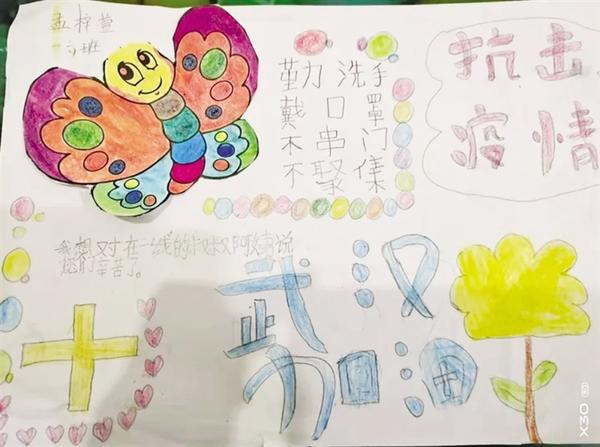 班
勤洗手
戴口罩
不串门
不聚集
抗击
疫情
我想对在一线的叔叔阿姨说
您们辛苦了。
武汉
加油